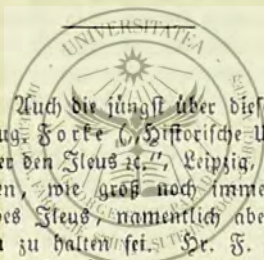 UNIVERSITATEA
Auch die jüngſt über dieſ
ug. Forke („Hiſtoriſche U
er den Ileus ꝛc.", Leipzig,
en, wie groß noch imme
es Ileus, namentlich abe
zu halten ſei. Hr. F.